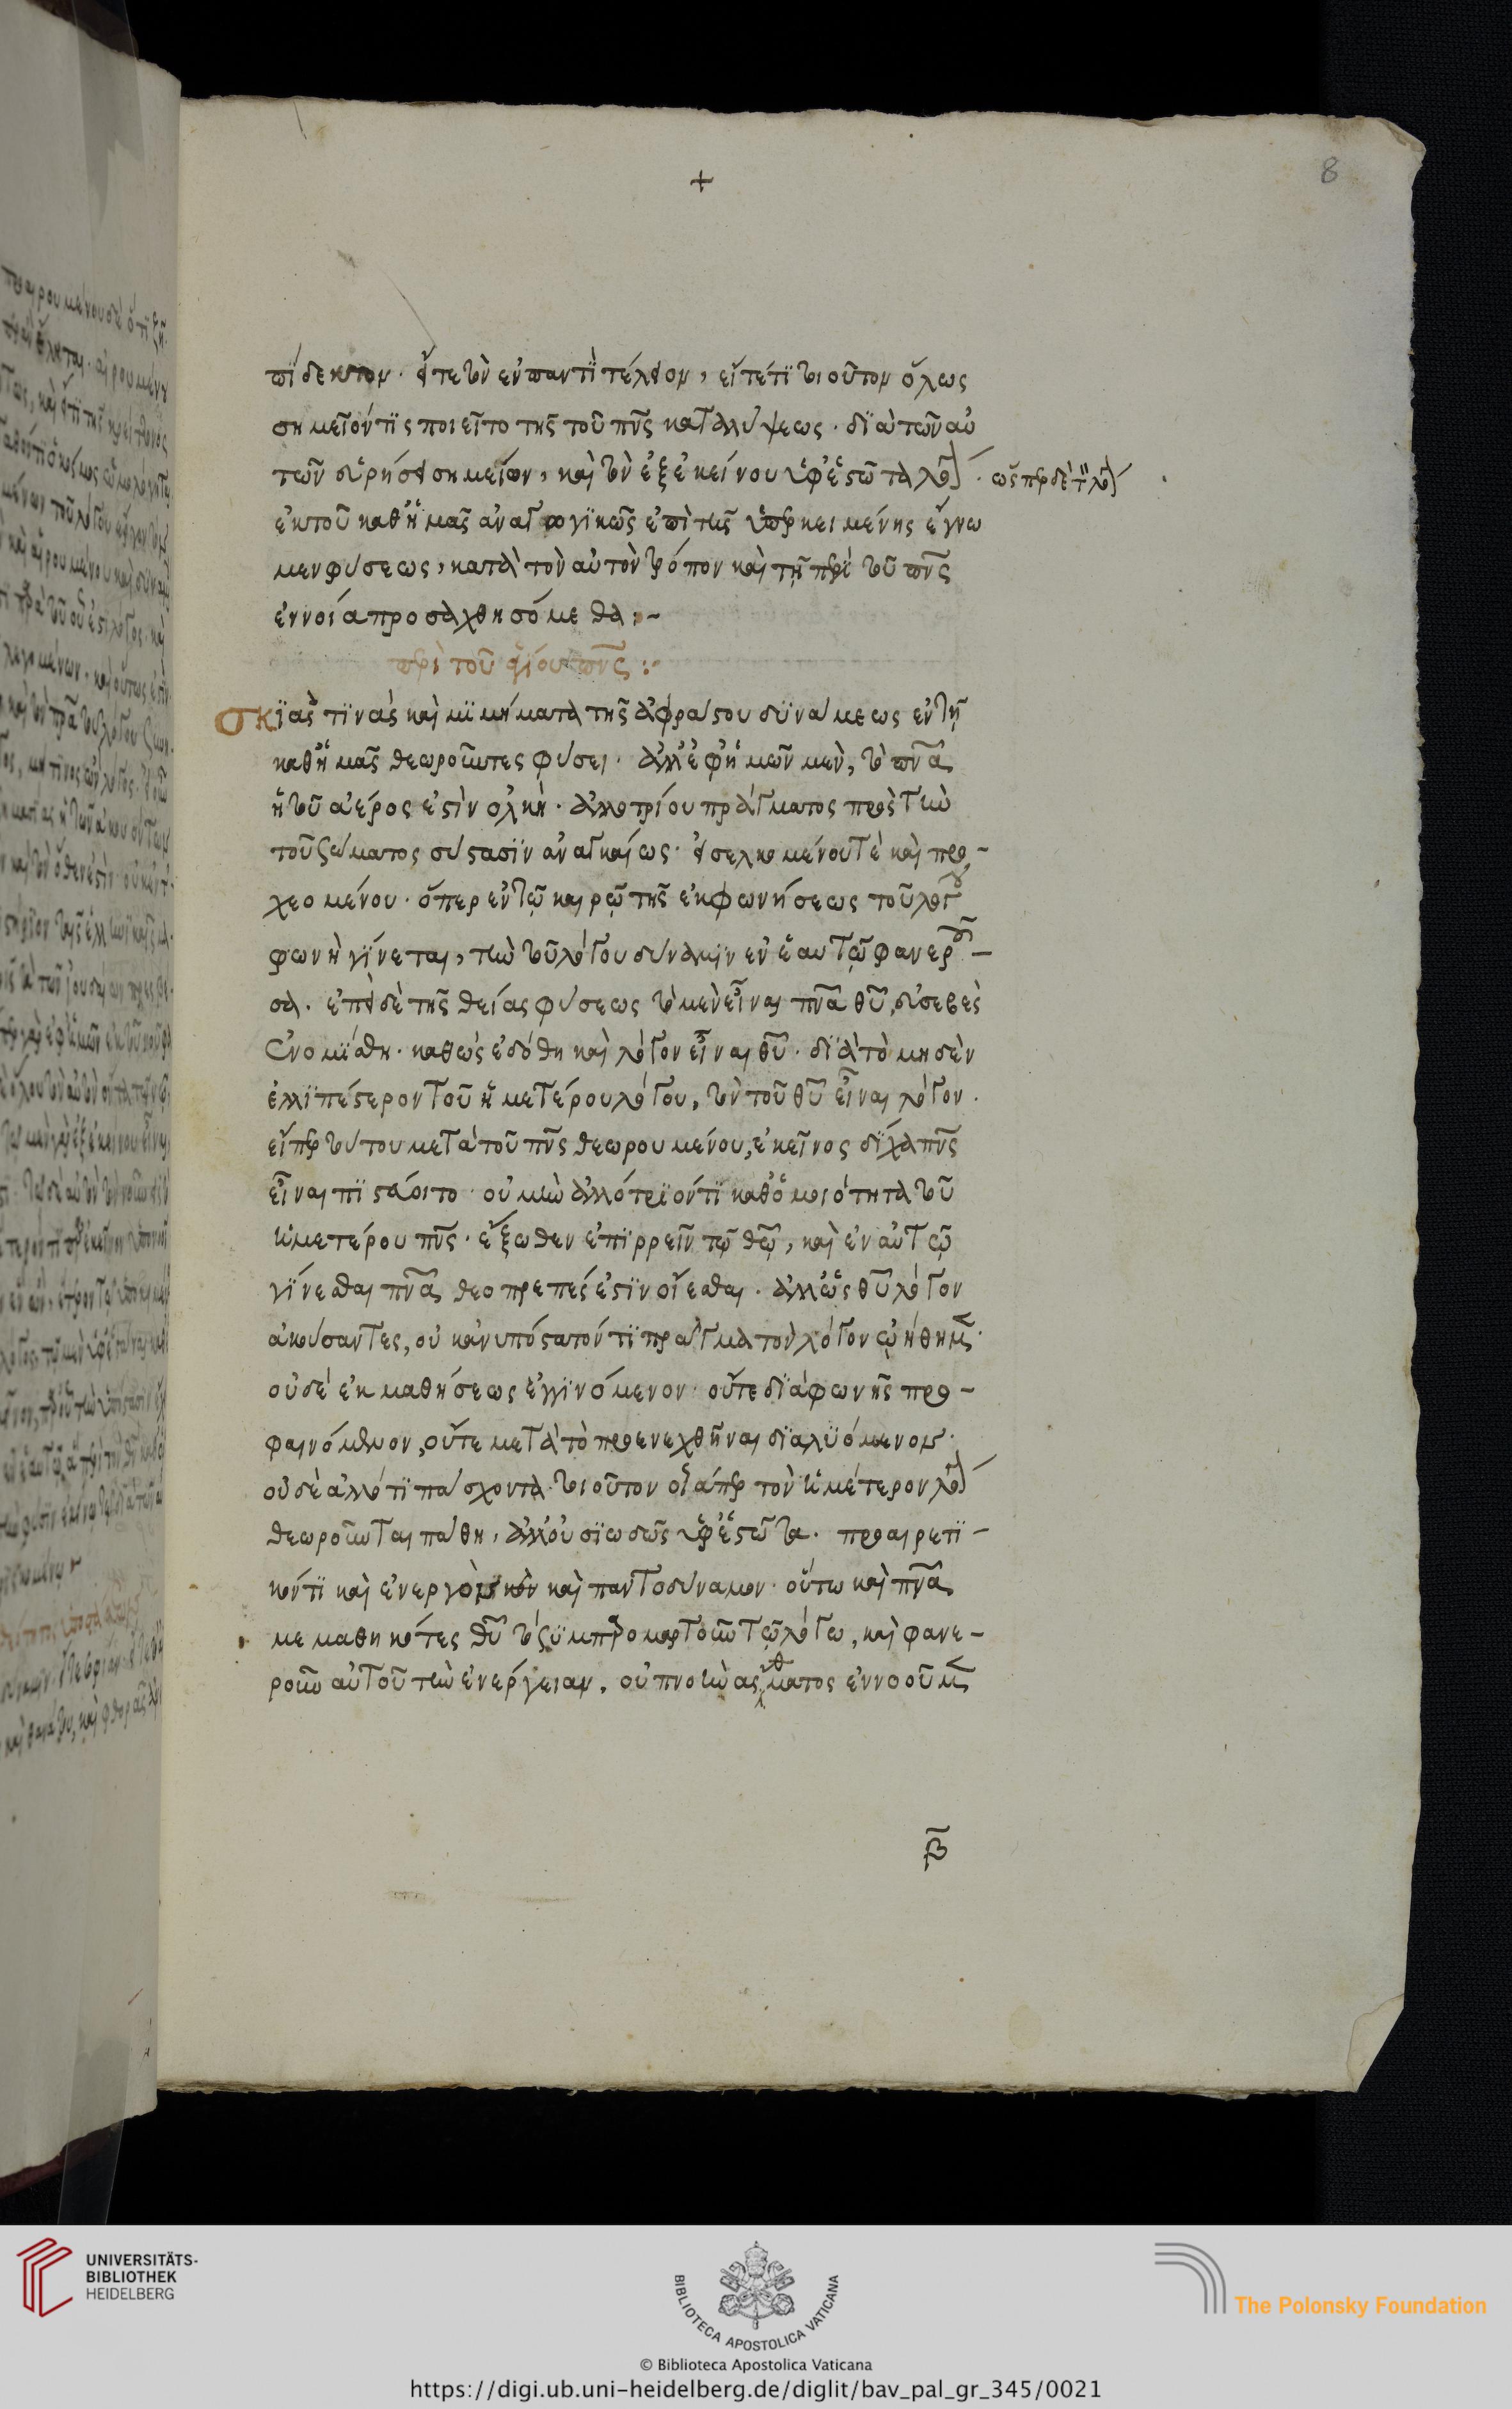 8
+
πίδεκτον. εἴτε οὖν ἐν παντὶ τέλειον, εἴτέ τι τοιοῦτον ὅλως
σημεῖόν τις ποιεῖτο τῆς τοῦ πν̅ς καταλήψεως. διὰ τῶν αὐ
τῶν εὑρήσει σημείων, καὶ τὸν ἐξ ἐκείνου ὑφεστῶτα λό. ὥσπερ δὲ τ λό
ἐκ τοῦ καθ' ἡμᾶς ἀναγωγικῶς ἐπὶ τῆς ὑπερκειμένης ἔγνω
μεν φύσεως, κατὰ τὸν αὐτὸν τρόπον καὶ τῇ περὶ τοῦ πν̅ς
ἐννοία προσαχθησόμεθα :-
περὶ τοῦ ἁγίου πν̅ς :-
Σκϊάς τινας καὶ μϊμήματα τῆς ἀφράστου δυνάμεως ἐν τῇ
καθ' ἡμᾶς θεωροῦντες φύσει. ἀλλ' ἐφ' ἡμῶν μὲν, τὸ πν̅α
ἡ τοῦ ἀέρος ἐστὶν ὁλκή. ἀλλοτρίου πράγματος πρὸς τὴν
τοῦ σώματος σύστασϊν ἀναγκαίως εἰσελκομένου τὲ καὶ προ-
χεομένου. ὅπερ ἐν τῷ καιρῷ τῆς ἐκφωνήσεως τοῦ λόγου
φωνὴ γίνεται, τὴν τοῦ λόγου δύναμϊν ἐν ἑαυτῷ φανερου-
σα. ἐπὶ δὲ τῆς θείας φύσεως τὸ μὲν εἶναι πν̅α θυ̅, εὐσεβὲς
ἐνομίσθη. καθὼς ἐδόθη καὶ λόγον εἶναι θυ̅. διὰ τὸ μὴ δεῖν
ἐλλιπέστερον τοῦ ἡμετέρου λόγου, τὸν τοῦ θυ̅ εἶναι λόγον.
εἴπερ τούτου μετὰ τοῦ πν̅ς θεωρουμένου, ἐκεῖνος δίχα πν̅ς
εἶναι πιστεύοιτο. οὐ μὴν ἀλλότρϊόν τι καθ' ὁμοιότητα τοῦ
ἡμετέρου πν̅ς. ἔξωθεν ἐπιρρεῖν τῷ θω̅, καὶ ἐν αὐτῷ
γίνεσθαι πν̅α θεοπρεπές ἐστϊν οἴεσθαι. ἀλλ' ὡς θυ̅ λόγον
ἀκούσαντες, οὐκ ἀνυπόστατόν τι πρᾶγμα τὸν λόγον ᾠήθημ̅.
οὐδὲ ἐκ μαθήσεως ἐγγϊνόμενον. οὔτε διὰ φωνῆς προ-
φαινόμενον, οὔτε μετὰ τὸ προενεχθῆναι διαλϋόμενον.
οὐδὲ ἄλλό τι πάσχοντα τοιοῦτον οἷάπερ τὸν ἡμέτερον λό
θεωροῦνται πάθη, ἀλλ' οὐσιωδῶς ὑφεστῶτα. προαιρετϊ-
κόν τι καὶ ἐνεργὸν καὶ παντοδύναμον. οὕτω καὶ πν̅α
μεμαθηκότες θυ̅ τὸ συμπαρομαρτοῦν τῷ λόγω, καὶ φανε-
ροῦν αὐτοῦ τὴν ἐνέργειαν, οὐ πνοὴν ἄσθματος ἐννοοῦμ̅
β̅
UNIVERSITÄTS-
BIBLIOTHEK
HEIDELBERG
BIBLIOTECA APOSTOLICA VATICANA
The Polonsky Foundation
© Biblioteca Apostolica Vaticana
https://digi.ub.uni-heidelberg.de/diglit/bav_pal_gr_345/0021